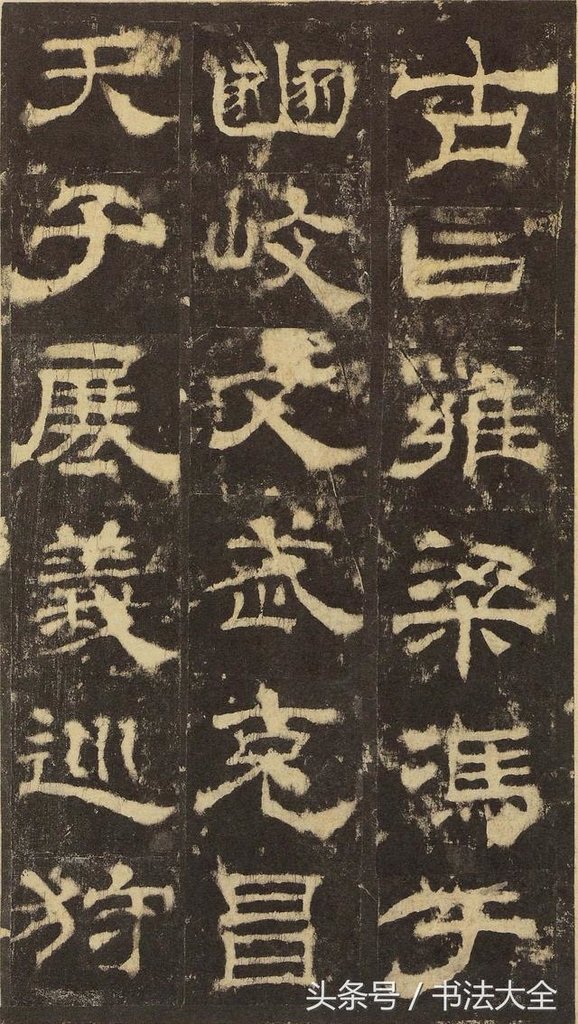 古曰雍梁馮于
豳岐文武克昌
天子展義巡狩
头条号 / 书法大全